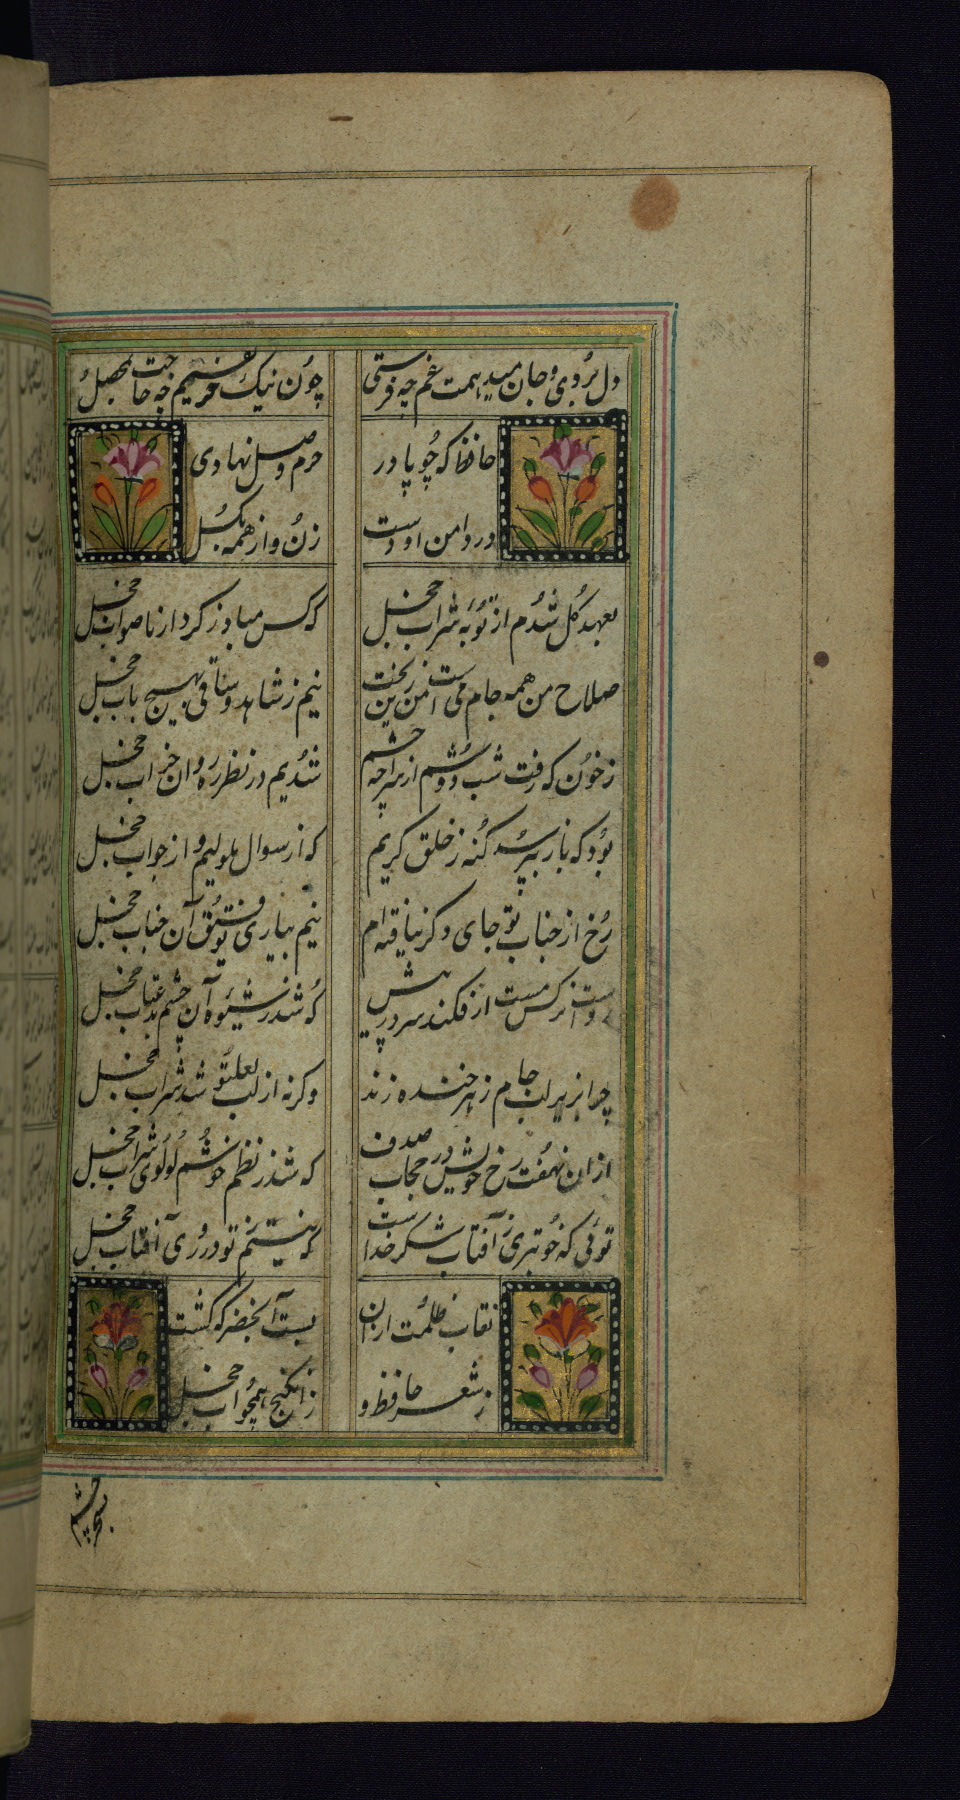 دل بُردی و جان میدهمت غم چه فرستی
چون نیک غم خوریم چه حاجت محصّل
حافظ که چُو پا در
حرم وصل نهادی
در دامن او دست
زن و از همه بگسل
بعهد گل شدم از توبهٔ شراب خجل
که کس مباد ز کردار ناصواب خجل
صلاح من همه جام می است من زین بحث
نیم ز شاهد و ساقی بهیچ باب خجل
ز خون که رفت شب دوشم از سراچه چشم
شدیم در نظر ره روان خواب خجل
بُود که یار نپرسد گنه ز خلق کریم
که از سوال ملولیم و از جواب خجل
رُخ از جناب تو جای دگر نیافته ام
نیم بیاری توفیق آن جناب خجل
رواست نرکس مست ار فکند سر در پیش
که شد ز شیوه آن چشم پر عتاب خجل
چرا بزیر لب جام زهر خنده زند
وکرنه از لب لعلتو شد شراب خجل
از ان نهفت رخ خویش در حجاب صدف
که شد ز نظم خوشم لولوی شراب خجل
توئی که خوبتری ز آفتاب شکر خداست
که نیستم تو در روی آفتاب خجل
نقاب ظلمت از ان
بست آبخضر که کشت
ز شعر حافظ و
زان گنج همچو آب خجل